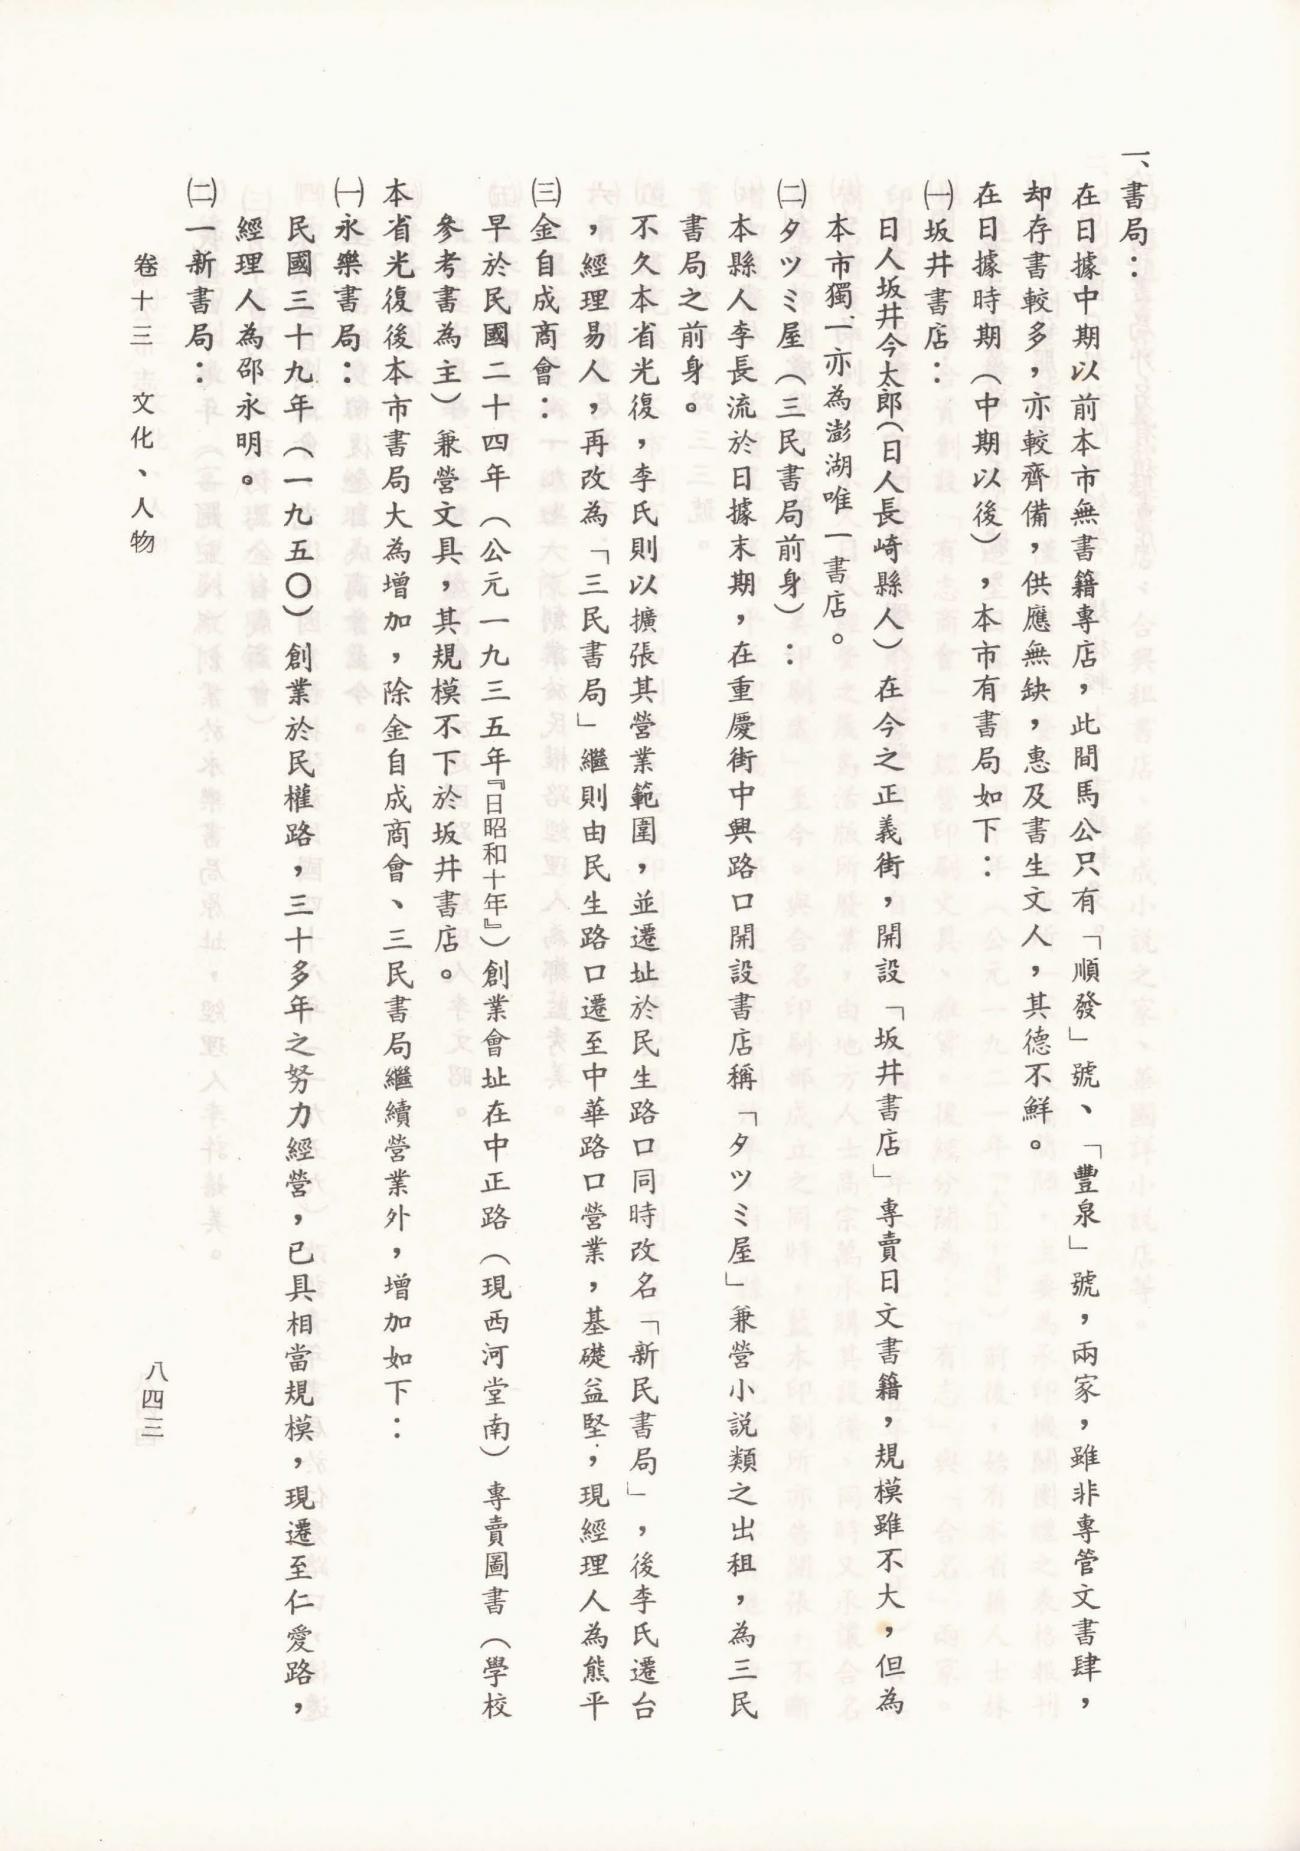 一、書局：
在日據中期以前本市無書籍專店，此間馬公只有「順發」號、「豐泉」號，兩家，雖非專管文書肆，
却存書較多，亦較齊備，供應無缺，惠及書生文人，其德不鮮。
在日據時期（中期以後），本市有書局如下：
㈠坂井書店：
日人坂井今太郎（日人長崎縣人）在今之正義街，開設「坂井書店」專賣日文書籍，規模雖不大，但為
本市獨一亦為澎湖唯一書店。
㈡タツミ屋（三民書局前身）：
本縣人李長流於日據末期，在重慶街中興路口開設書店稱「タツミ屋」兼營小說類之出租，為三民
書局之前身。
不久本省光復，李氏則以擴張其營業範圍，並遷址於民生路口同時改名「新民書局」，後李氏遷台
，經理易人，再改為「三民書局」繼則由民生路口遷至中華路口營業，基礎益堅，現經理人為熊平
㈢金自成商會：
早於民國二十四年（公元一九三五年『日昭和十年』）創業會址在中正路（現西河堂南）專賣圖書（學校
參考書為主）兼營文具，其規模不下於坂井書店。
本省光復後本市書局大為增加，除金自成商會、三民書局繼續營業外，增加如下：
㈠永樂書局：
民國三十九年（一九五〇）創業於民權路，三十多年之努力經營，已具相當規模，現遷至仁愛路，
經理人為邵永明。
㈡一新書局：
卷十三 文化、人物
八四三